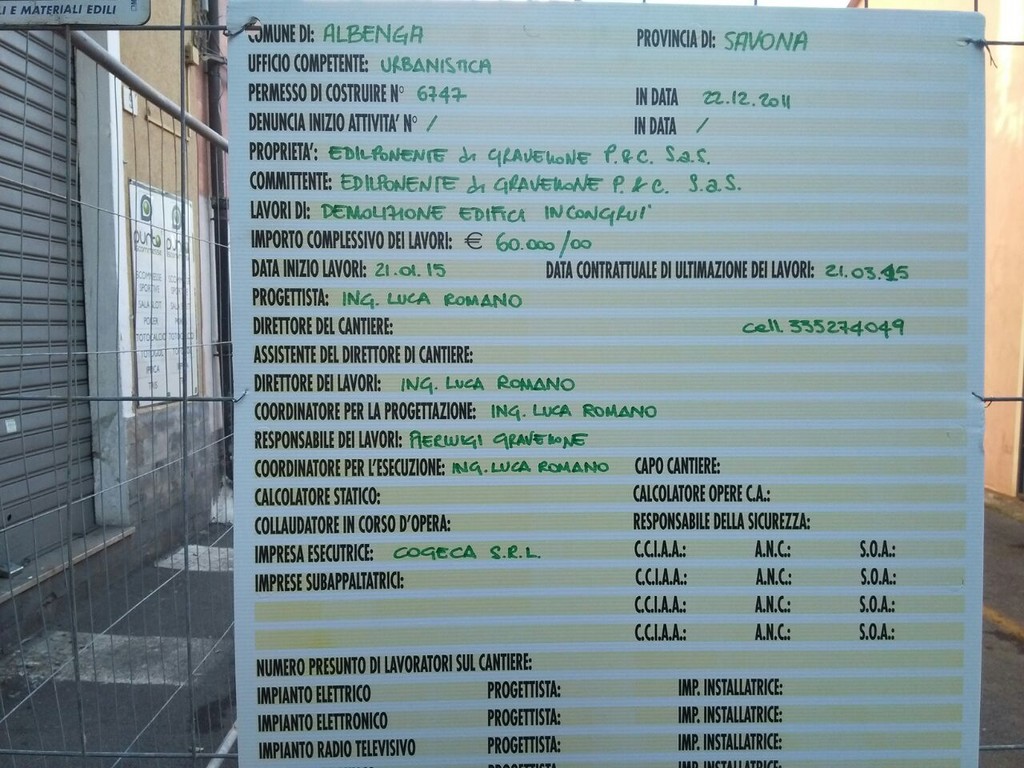 I E MATERIALI EDILI
COMUNE DI: ALBENGA PROVINCIA DI: SAVONA
UFFICIO COMPETENTE: URBANISTICA
PERMESSO DI COSTRUIRE N° 6747 IN DATA 22.12.2011
DENUNCIA INIZIO ATTIVITA' N° / IN DATA /
PROPRIETA': EDILPONENTE di GRAVELLONE P. & C. S.a.S.
COMMITTENTE: EDILPONENTE di GRAVELLONE P. & C. S.a.S.
LAVORI DI: DEMOLIZIONE EDIFICI INCONGRUI'
IMPORTO COMPLESSIVO DEI LAVORI: € 60.000/00
DATA INIZIO LAVORI: 21.01.15 DATA CONTRATTUALE DI ULTIMAZIONE DEI LAVORI: 21.03.15
PROGETTISTA: ING. LUCA ROMANO
DIRETTORE DEL CANTIERE: cell. 335274049
ASSISTENTE DEL DIRETTORE DI CANTIERE:
DIRETTORE DEI LAVORI: ING. LUCA ROMANO
COORDINATORE PER LA PROGETTAZIONE: ING. LUCA ROMANO
RESPONSABILE DEI LAVORI: PIERLUIGI GRAVELLONE
COORDINATORE PER L'ESECUZIONE: ING. LUCA ROMANO CAPO CANTIERE:
CALCOLATORE STATICO: CALCOLATORE OPERE C.A.:
COLLAUDATORE IN CORSO D'OPERA: RESPONSABILE DELLA SICUREZZA:
IMPRESA ESECUTRICE: COGECA S.R.L. C.C.I.A.A.: A.N.C.: S.O.A.:
IMPRESE SUBAPPALTATRICI: C.C.I.A.A.: A.N.C.: S.O.A.:
C.C.I.A.A.: A.N.C.: S.O.A.:
C.C.I.A.A.: A.N.C.: S.O.A.:
NUMERO PRESUNTO DI LAVORATORI SUL CANTIERE:
IMPIANTO ELETTRICO PROGETTISTA: IMP. INSTALLATRICE:
IMPIANTO ELETTRONICO PROGETTISTA: IMP. INSTALLATRICE:
IMPIANTO RADIO TELEVISIVO PROGETTISTA: IMP. INSTALLATRICE:
PROGETTISTA: IMP. INSTALLATRICE:
SCOMMESSE
SPORTIVE
SALA SLOT
POKER
TOTOCALCIO
IPPICA